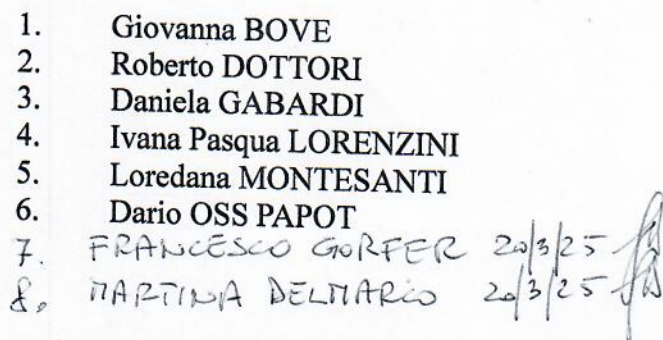 1. Giovanna BOVE
2. Roberto DOTTORI
3. Daniela GABARDI
4. Ivana Pasqua LORENZINI
5. Loredana MONTESANTI
6. Dario OSS PAPOT
7. FRANCESCO GORFER 20/3/25
8. MARTINA DELMARCO 20/3/25